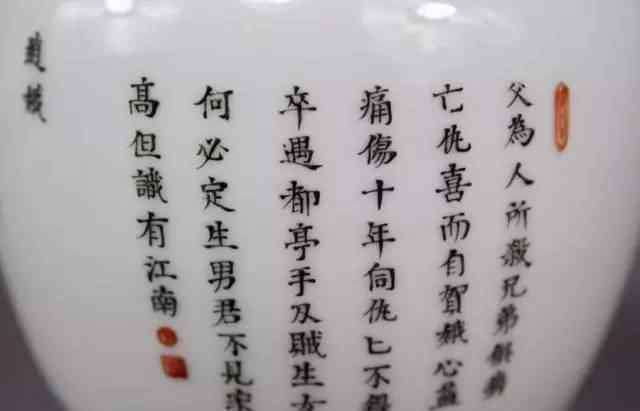 父為人所殺兄弟
亡仇喜而自賀娥心益
痛傷十年伺仇匕不得
卒遇都亭手刃賊生女
何必定生男君不見
高但識有江南
趙娥